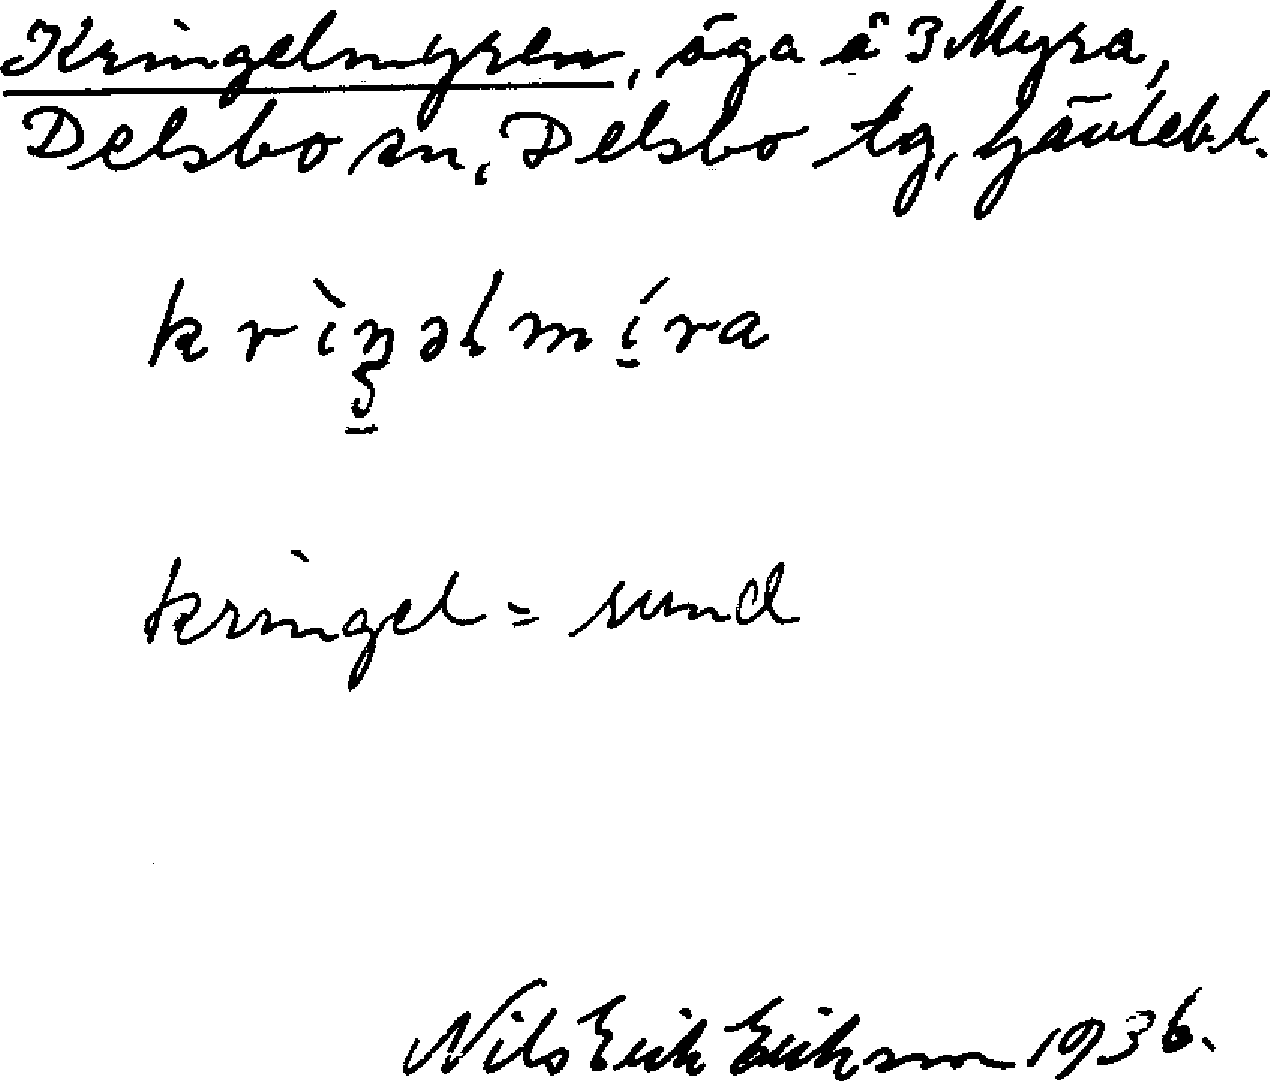 Kringelmyren, äga å 3 Myra,
Delsbo sn, Delsbo tg, Gävleb.l.
krìŋəlmíra
kringel = rund
Nils Erik Erikson 1936.